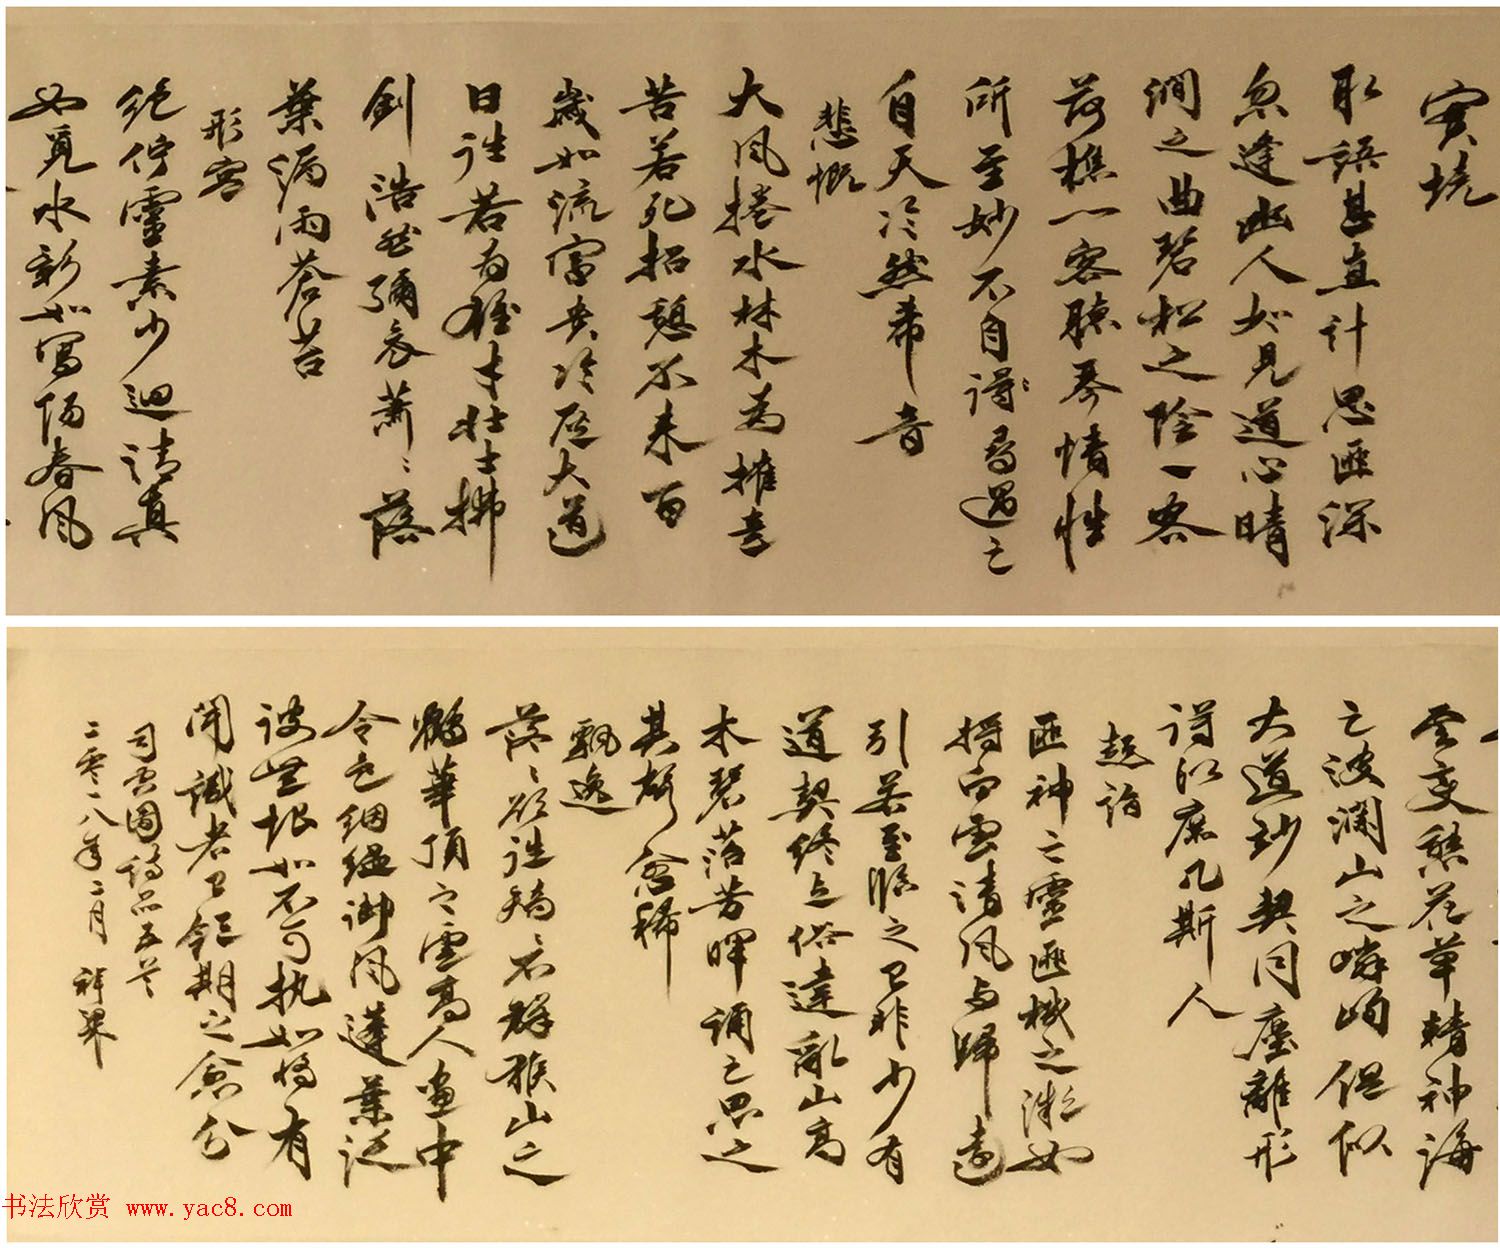 實境
取語甚直計思匪深
忽逢幽人如見道心晴
澗之曲碧松之陰一客
荷樵一客聽琴情性
所至妙不自尋遇之
自天泠然希音
悲慨
大風捲水林木為摧意
苦若死招憩不來百
歲如流富貴冷灰大道
日往若為雄才壯士拂
劍浩然彌哀蕭蕭落
葉漏雨蒼苔
形容
絕佇靈素少迴清真
如覓水影如寫陽春風
雲變態花草精神海
之波瀾山之嶙峋俱似
大道妙契同塵離形
得似庶幾斯人
超詣
匪神之靈匪機之微如
將白雲清風與歸遠
引若至臨之已非少有
道契終與俗違亂山高
木碧苔芳暉誦之思之
其聲愈稀
飄逸
落落欲往矯矯不群緱山之
鶴華頂之雲高人畫中
令色絪縕御風蓬葉泛
彼無垠如不可執如將有
聞識者已領期之愈分
司空圖詩品五首
二零一八年二月
书法欣赏 www.yac8.com